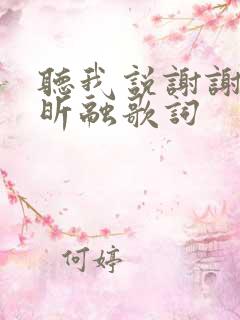 聽我説謝謝
昕融歌詞
何婷